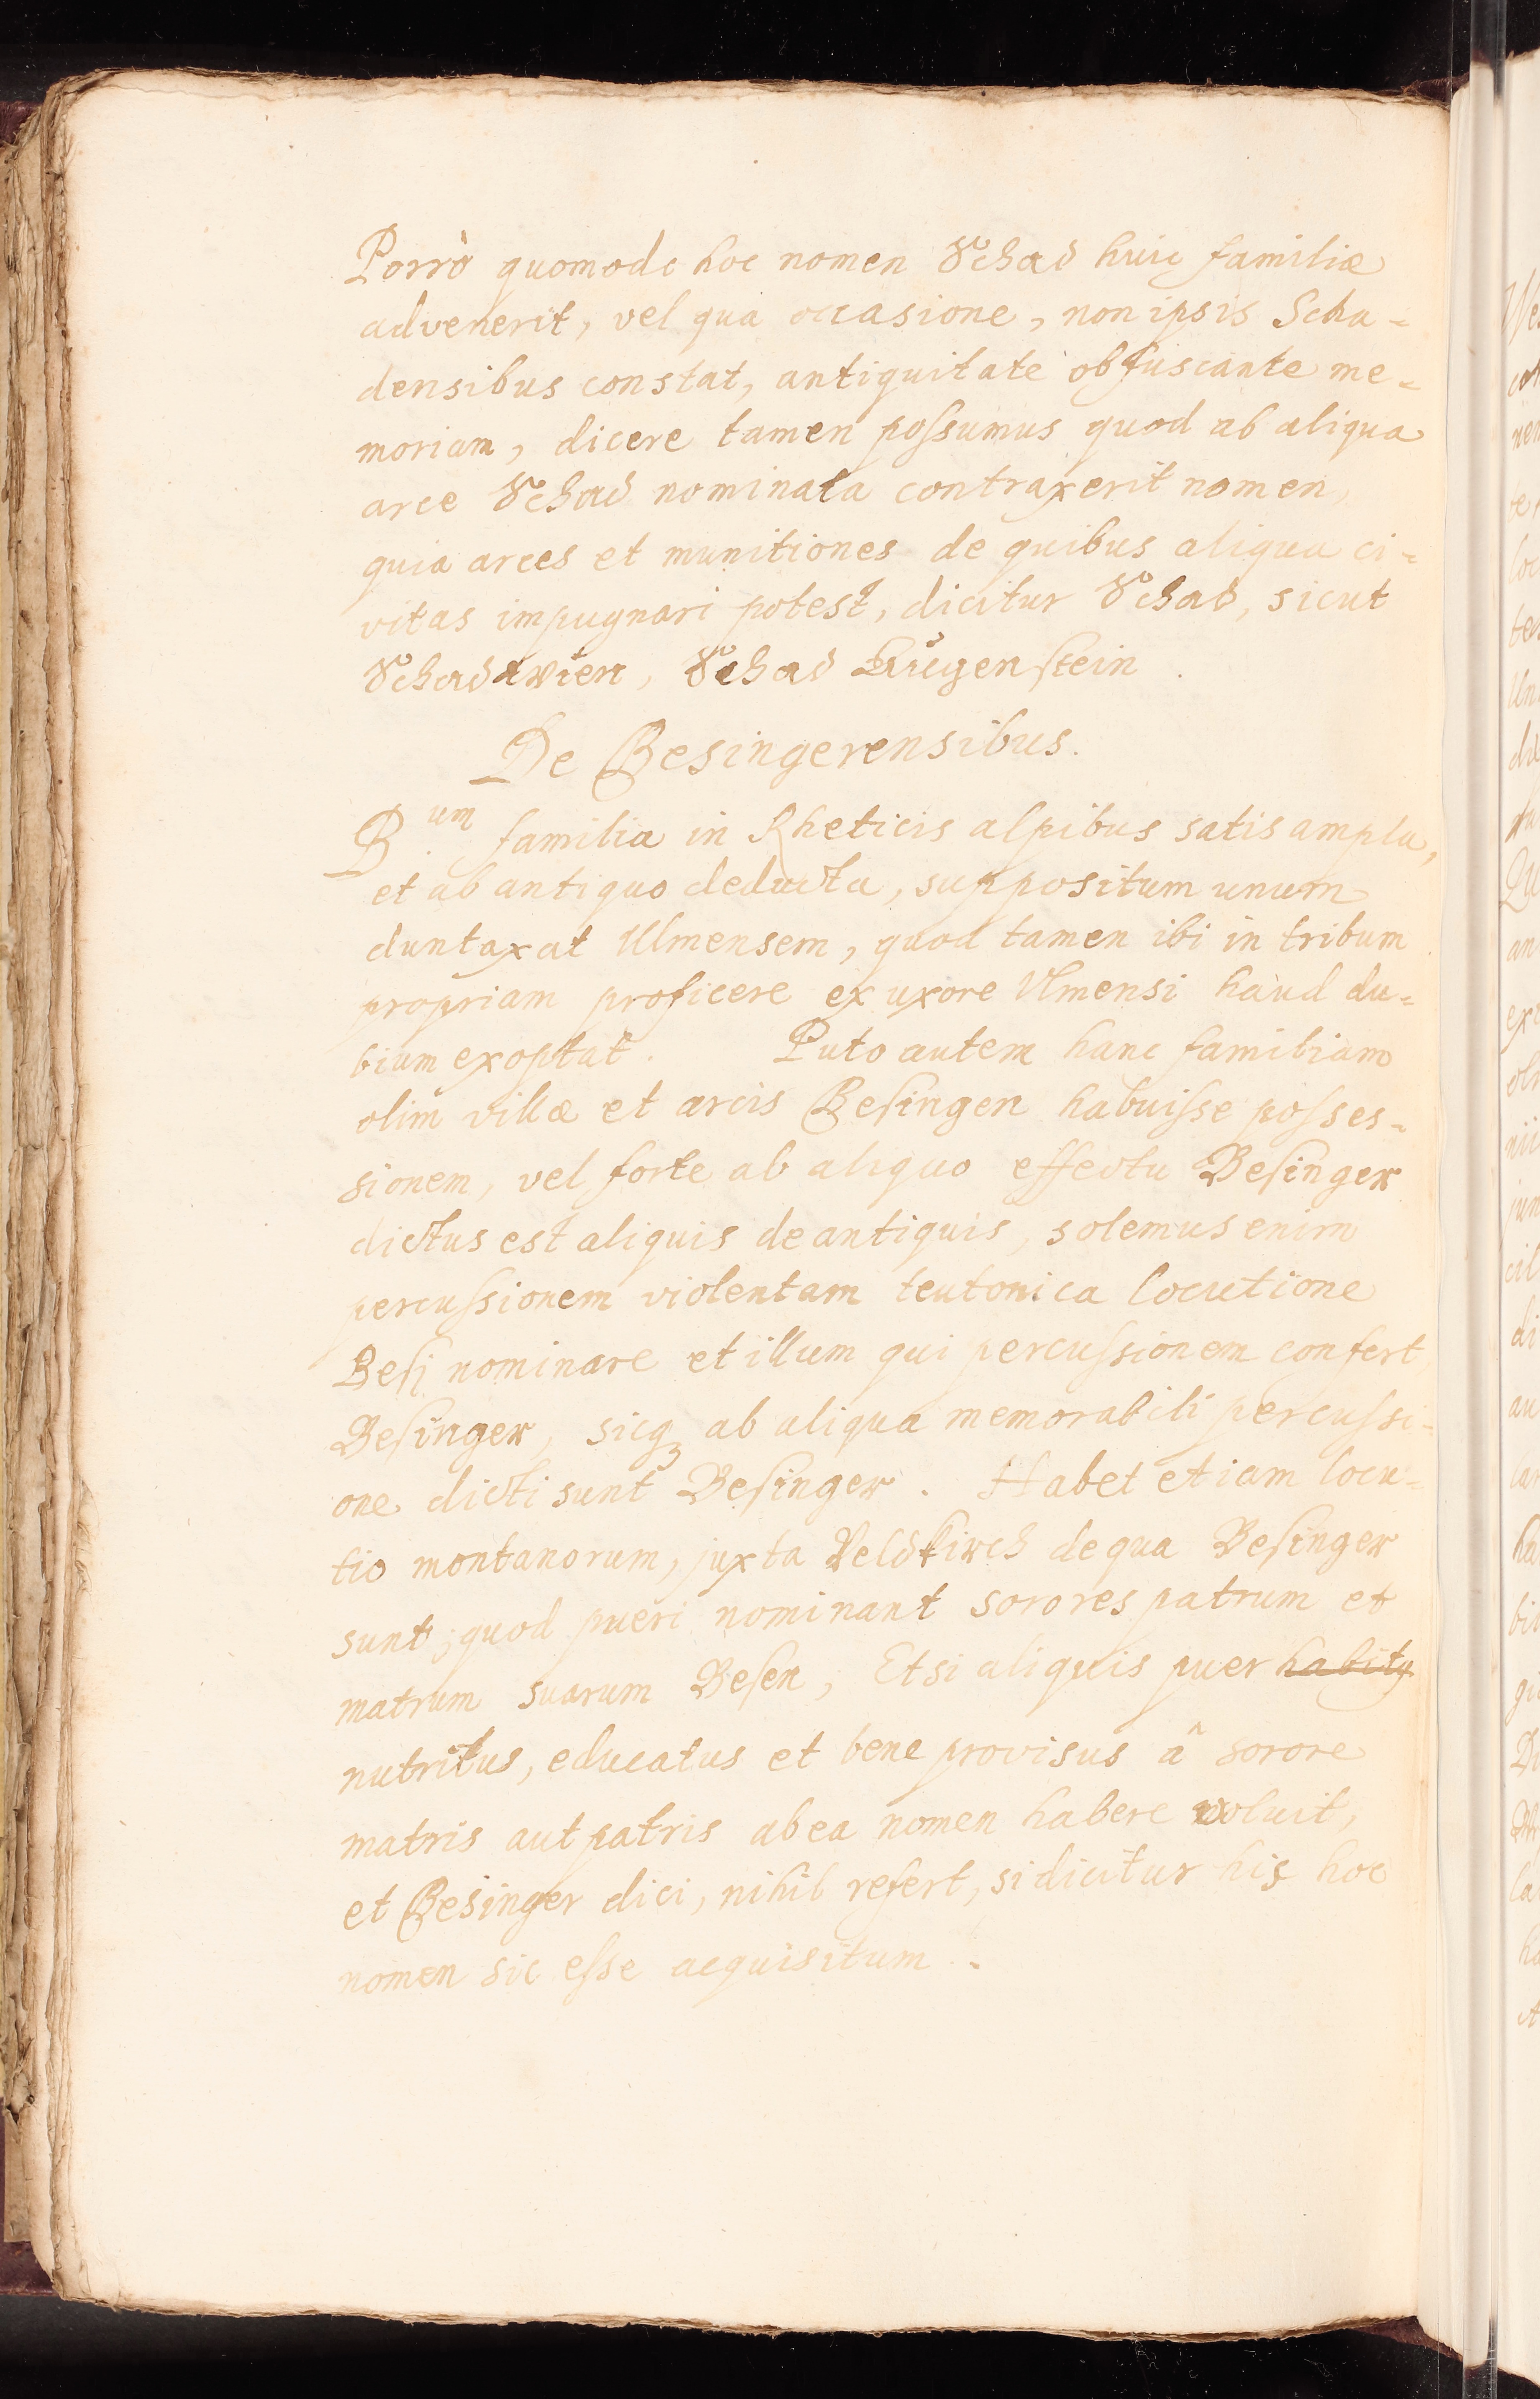 Porrò quomodo hoc nomen Schad huic familiæ
advenerit, vel qua occasione, non ipsis Scha=
densibus constat, antiquitate obfuscante me=
moriam, dicere tamen poſsumus quod ab aliqua
arce Schad nominata contraxerit nomen,
quia arces et munitiones de quibus aliqua ci=
vitas impugnari potest, dicitur Schad, sicut
Schadawien, Schad Lüegenſtein.
De Besingerensibus.
B.um familia in Rheticis alpibus satis ampla,
et ab antiquo deducta, suppositum unum
duntaxat Ulmensem, quod tamen ibi in tribum
propriam proficere ex uxore Ulmensi haud du=
bium exoptat. Puto autem hanc familiam
olim villæ et arcis Beſingen habuiſse poſses=
sionem, vel forte ab aliquo effectu Beſinger
dictus est aliquis de antiquis, solemus enim
percuſsionem violentam teutonica locutione
Beſi nominare et illum qui percuſsionem confert,
Beſinger, sicqꝫ ab aliqua memorabili percuſsi=
one dicti sunt Beſinger. Habet etiam locu=
tio montanorum, juxta Veldkirch de qua Beſinger
sunt, quod pueri nominant sorores patrum et
matrum suarum Beſen, Et si aliquis puer habity
nutritus, educatus et bene provisus â sorore
matris aut patris ab ea nomen habere voluit,
et Besinger dici, nihil refert, si dicitur his hoc
nomen sic eſse acquisitum.